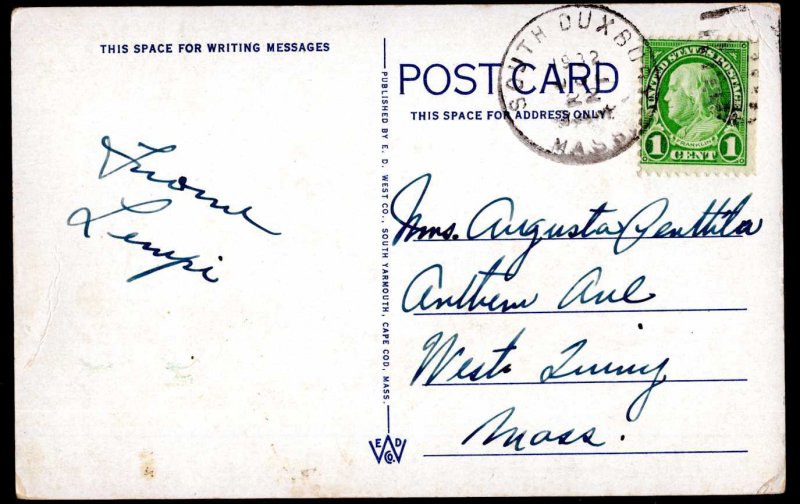 THIS SPACE FOR WRITING MESSAGES
From
Lempi
PUBLISHED BY E. D. WEST CO., SOUTH YARMOUTH, CAPE COD, MASS.
E D
W
CO.
POST CARD
THIS SPACE FOR ADDRESS ONLY
SOUTH DUXBURY
MASS.
UNITED STATES POSTAGE
FRANKLIN
1 CENT 1
Mrs. Augusta Penttila
Anthem Ave
West
Mass.